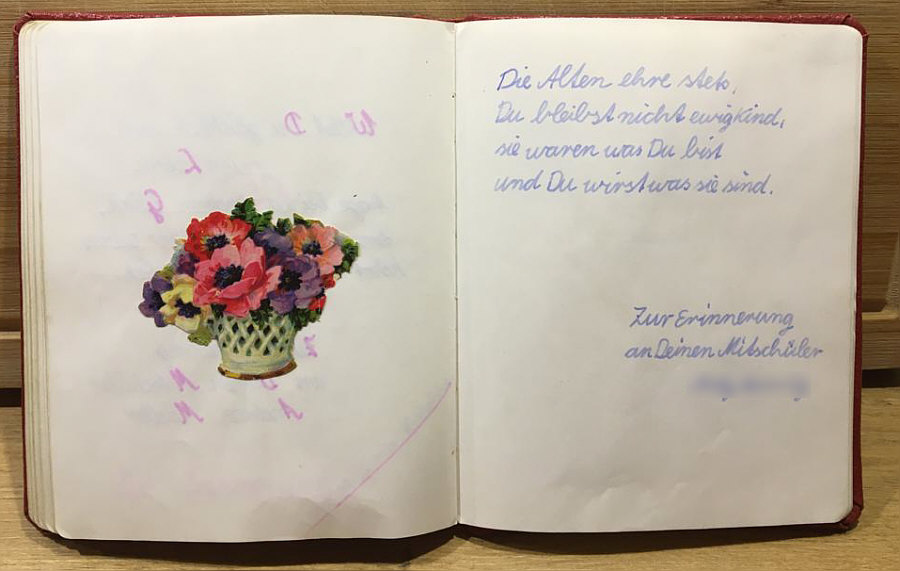 Die Alten ehre stets,
Du bleibst nicht ewig Kind,
sie waren was Du bist
und Du wirst was sie sind.
Zur Erinnerung
an Deinen Mitschüler